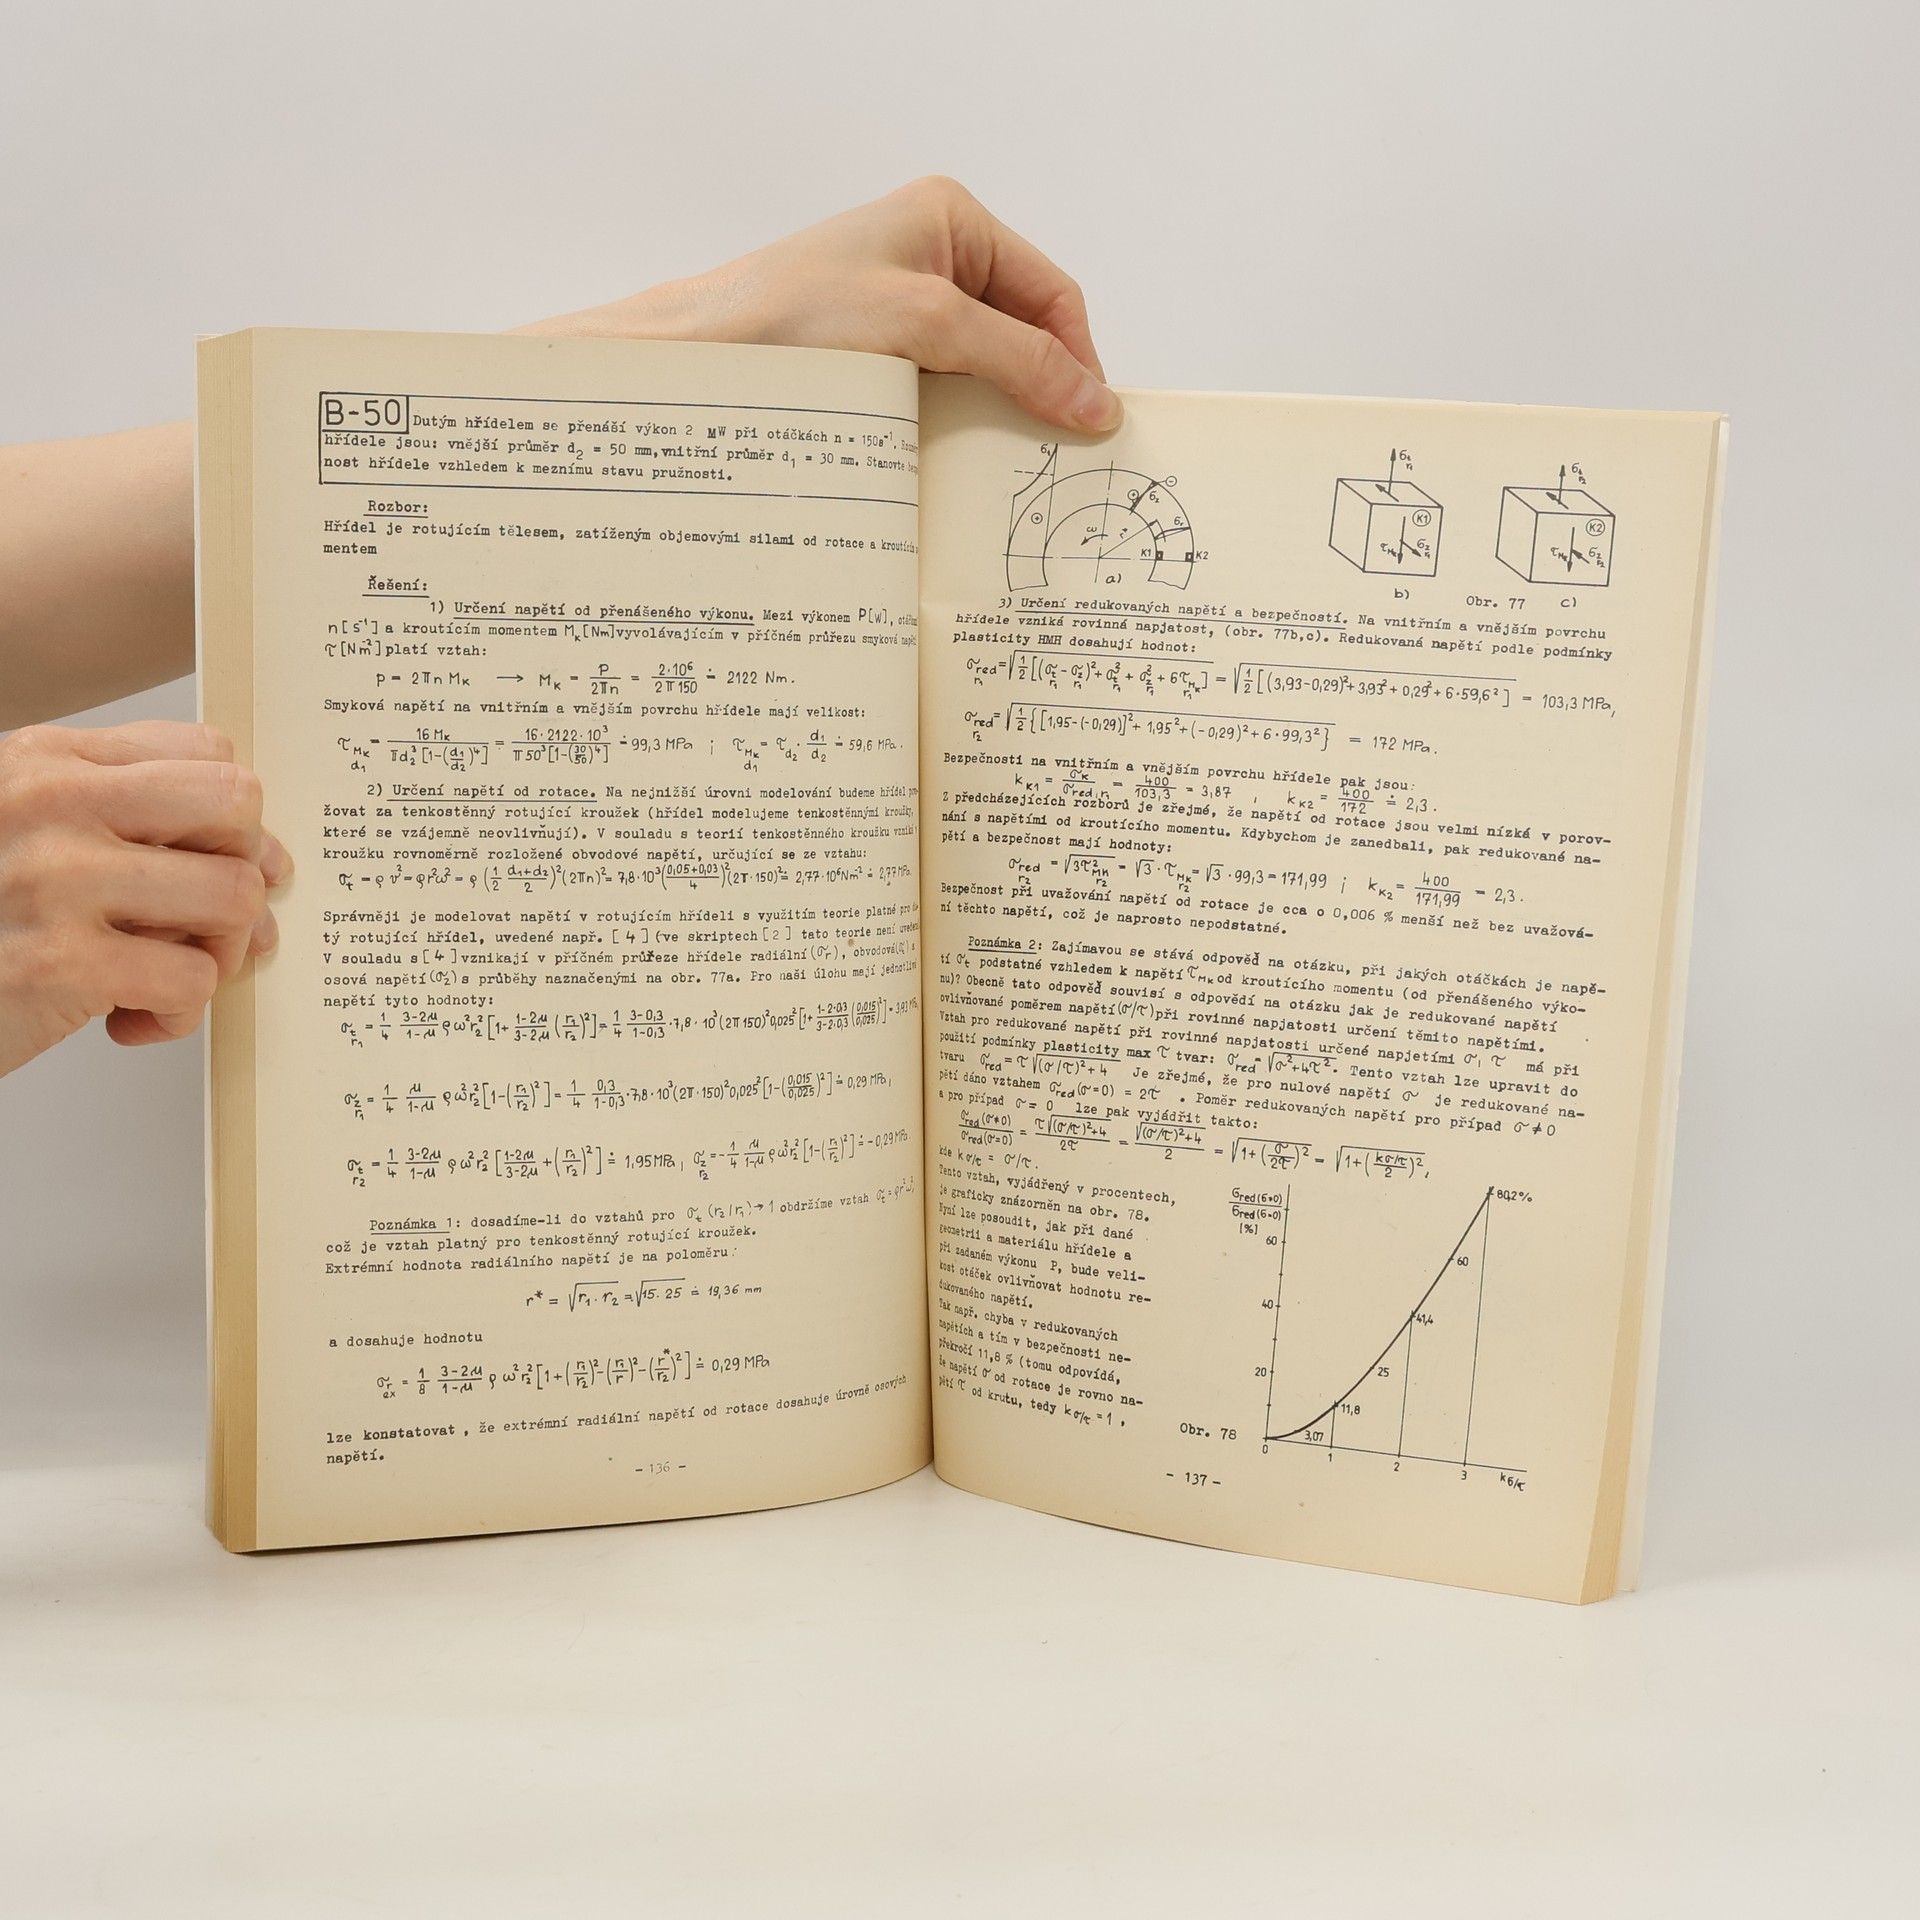 B-50 Dutým hřídelem se přenáší výkon 2 MW při otáčkách n = 150s⁻¹.
hřídele jsou: vnější průměr d₂ = 50 mm, vnitřní průměr d₁ = 30 mm. Stanovte
nost hřídele vzhledem k meznímu stavu pružnosti.
Rozbor:
Hřídel je rotujícím tělesem, zatíženým objemovými silami od rotace a
mentem
Řešení:
1) Určení napětí od přenášeného výkonu. Mezi výkonem P[W],
n[s⁻¹] a kroutícím momentem Mₖ[Nm] vyvolávajícím v příčném průřezu smyková
τ[Nm⁻²] platí vztah:
p = 2πn Mₖ → Mₖ = P/2πn = 2·10⁶/2π150 ≐ 2122 Nm.
Smyková napětí na vnitřním a vnějším povrchu hřídele mají velikost:
τ_Mₖ d₁ = 16 Mₖ/πd₂³[1-(d₁/d₂)⁴] = 16·2122·10³/π50³[1-(30/50)⁴] ≐ 99,3 MPa ; τ_Mₖ d₁ = τ_d₂ · d₁/d₂ ≐ 59,6 MPa.
2) Určení napětí od rotace. Na nejnižší úrovni modelování budeme hřídel
žovat za tenkostěnný rotující kroužek (hřídel modelujeme tenkostěnnými kroužky,
které se vzájemně neovlivňují). V souladu s teorií tenkostěnného kroužku vzniká v
kroužku rovnoměrně rozložené obvodové napětí, určující se ze vztahu:
σ_t = ϱ v² = ϱr²ω² = ϱ (1/2 d₁+d₂/2)²(2πn)² = 7,8·10³(0,05+0,03/4)²(2π·150)² ≐ 2,77·10⁶Nm⁻² ≐ 2,77 MPa.
Správněji je modelovat napětí v rotujícím hřídeli s využitím teorie platné pro
tý rotující hřídel, uvedené např. [4] (ve skriptech [2] tato teorie není
V souladu s [4] vznikají v příčném průřeze hřídele radiální (σ_r), obvodová (σ_t) a
osová napětí (σ_z) s průběhy naznačenými na obr. 77a. Pro naši úlohu mají jednotlivá
napětí tyto hodnoty:
σ_t r₁ = 1/4 3-2μ/1-μ ϱω²r₂²[1+ 1-2μ/3-2μ (r₁/r₂)²] = 1/4 3-0,3/1-0,3 ·7,8·10³(2π150)²0,025²[1+ 1-2·03/3-2·0,3 (0,015/0,025)²] = 3,93 MPa
σ_z r₁ = 1/4 μ/1-μ ϱω²r₂²[1-(r₁/r₂)²] = 1/4 0,3/1-0,3 ·7,8·10³(2π·150)²0,025²[1-(0,015/0,025)²] ≐ 0,29 MPa,
σ_t r₂ = 1/4 3-2μ/1-μ ϱω²r₂²[1-2μ/3-2μ + (r₁/r₂)²] ≐ 1,95 MPa, σ_z r₂ = -1/4 μ/1-μ ϱω²r₂²[1-(r₁/r₂)²] ≐ -0,29 MPa.
Poznámka 1: dosadíme-li do vztahů pro σ_t (r₂/r₁) → 1 obdržíme vztah σ_t = ϱr²ω²,
což je vztah platný pro tenkostěnný rotující kroužek.
Extrémní hodnota radiálního napětí je na poloměru:
r* = √r₁·r₂ = √15·25 ≐ 19,36 mm
a dosahuje hodnotu
σ_r ex = 1/8 3-2μ/1-μ ϱω²r₂²[1+(r₁/r₂)²-(r₁/r)²-(r*/r₂)²] ≐ 0,29 MPa
lze konstatovat, že extrémní radiální napětí od rotace dosahuje úrovně osových
napětí.
- 136 -
σ_t
σ_z
σ_r
ω
r*
K1
K2
a)
σ_t r₁
K1
τ_Mₖ
σ_z r₁
b)
σ_t r₂
K2
τ_Mₖ
σ_z r₂
c)
Obr. 77
3) Určení redukovaných napětí a bezpečností. Na vnitřním a vnějším povrchu
hřídele vzniká rovinná napjatost, (obr. 77b,c). Redukovaná napětí podle podmínky
plasticity HMH dosahují hodnot:
σ_red r₁ = √1/2[(σ_t r₁ - σ_z r₁)² + σ_t² r₁ + σ_z² r₁ + 6τ²_Mₖ r₁] = √1/2[(3,93-0,29)²+3,93²+0,29²+6·59,6²] = 103,3 MPa,
σ_red r₂ = √1/2{[1,95-(-0,29)]²+1,95²+(-0,29)²+6·99,3²} = 172 MPa.
Bezpečnosti na vnitřním a vnějším povrchu hřídele pak jsou:
k_K1 = σ_K/σ_red,r₁ = 400/103,3 = 3,87 , k_K2 = 400/172 ≐ 2,3.
Z předcházejících rozborů je zřejmé, že napětí od rotace jsou velmi nízká v porov-
nání s napětími od kroutícího momentu. Kdybychom je zanedbali, pak redukované na-
pětí a bezpečnost mají hodnoty:
σ_red r₂ = √3τ²_Mₖ r₂ = √3·τ_Mₖ r₂ = √3·99,3 = 171,99 ; k_K2 = 400/171,99 = 2,3.
Bezpečnost při uvažování napětí od rotace je cca o 0,006 % menší než bez uvažová-
ní těchto napětí, což je naprosto nepodstatné.
Poznámka 2: Zajímavou se stává odpověď na otázku, při jakých otáčkách je napě-
tí σ_t podstatné vzhledem k napětí τ_Mₖ od kroutícího momentu (od přenášeného výko-
nu)? Obecně tato odpověď souvisí s odpovědí na otázku jak je redukované napětí
ovlivňované poměrem napětí (σ/τ) při rovinné napjatosti určení těmito napětími.
Vztah pro redukované napětí při rovinné napjatosti určené napjetími σ, τ má při
použití podmínky plasticity max τ tvar: σ_red = √σ²+4τ². Tento vztah lze upravit do
tvaru σ_red = τ√(σ/τ)²+4 Je zřejmé, že pro nulové napětí σ je redukované na-
pětí dáno vztahem σ_red(σ=0) = 2τ . Poměr redukovaných napětí pro případ σ ≠ 0
a pro případ σ = 0 lze pak vyjádřit takto:
σ_red(σ≠0)/σ_red(σ=0) = τ√(σ/τ)²+4/2τ = √(σ/τ)²+4/2 = √1+(σ/2τ)² = √1+(kσ/τ/2)²,
kde kσ/τ = σ/τ.
Tento vztah, vyjádřený v procentech,
je graficky znázorněn na obr. 78.
Nyní lze posoudit, jak při dané
geometrii a materiálu hřídele a
při zadaném výkonu P, bude veli-
kost otáček ovlivňovat hodnotu re-
dukovaného napětí.
Tak např. chyba v redukovaných
napětích a tím v bezpečnosti ne-
překročí 11,8 % (tomu odpovídá,
že napětí σ od rotace je rovno na-
pětí τ od krutu, tedy kσ/τ = 1 ,
σred(σ≠0)
σred(σ=0)
[%]
80,2%
60
60
41,4
40
25
20
11,8
3,07
0 1 2 3 kσ/τ
Obr. 78
- 137 -